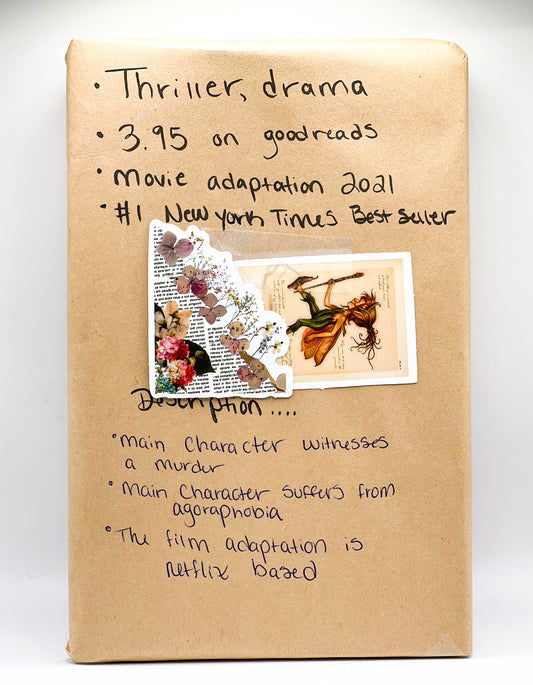 · Thriller, drama
· 3.95 on goodreads
· movie adaptation 2021
· #1 New York Times Best Seller
Description ....
· main character witnesses
a murder
· main character suffers from
agoraphobia
· The film adaptation is
netflix based